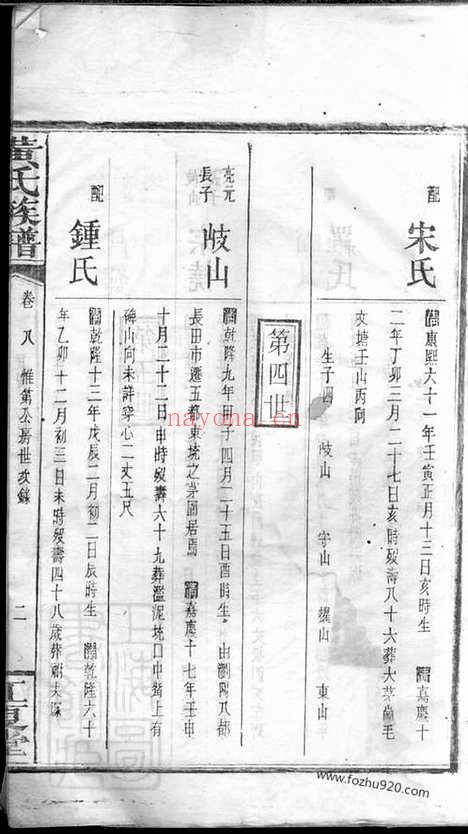 配
宋氏
清康熙六十一年壬寅正月十三日亥時生 清嘉慶十
二年丁卯三月二十七日亥時歿壽八十六葬大芬崙毛
坎塘壬山丙向
生子四 岐山 守山 耀山 東山
第四世
亮元
長子
岐山
清乾隆九年甲子四月二十五日酉時生 由瀏陽八都
長田市遷五都東坑之茅圍居焉 清嘉慶十七年壬申
十月二十二日申時歿壽六十九葬濫泥坑口中嘴上有
碑山向未詳穿心二丈五尺
配
鍾氏
清乾隆十三年戊辰二月初二日辰時生 清乾隆六十
年乙卯十二月初三日未時歿壽四十八歲葬胡夫深
黃氏族譜
卷八 惟第公房世次錄
二
江夏堂
nayona.cn
www.fozhu920.com